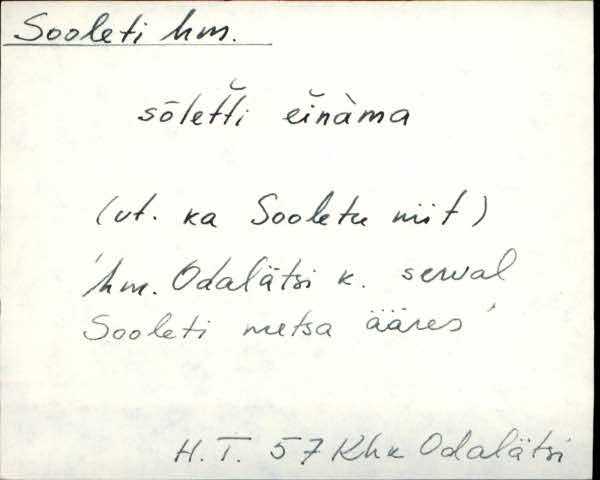 Sooleti hm.
sōletti einàma
(vt. ka Sooletu niit)
'hm. Odalätsi k. serval
Sooleti metsa ääres'
H.T. 57 Khk Odalätsi